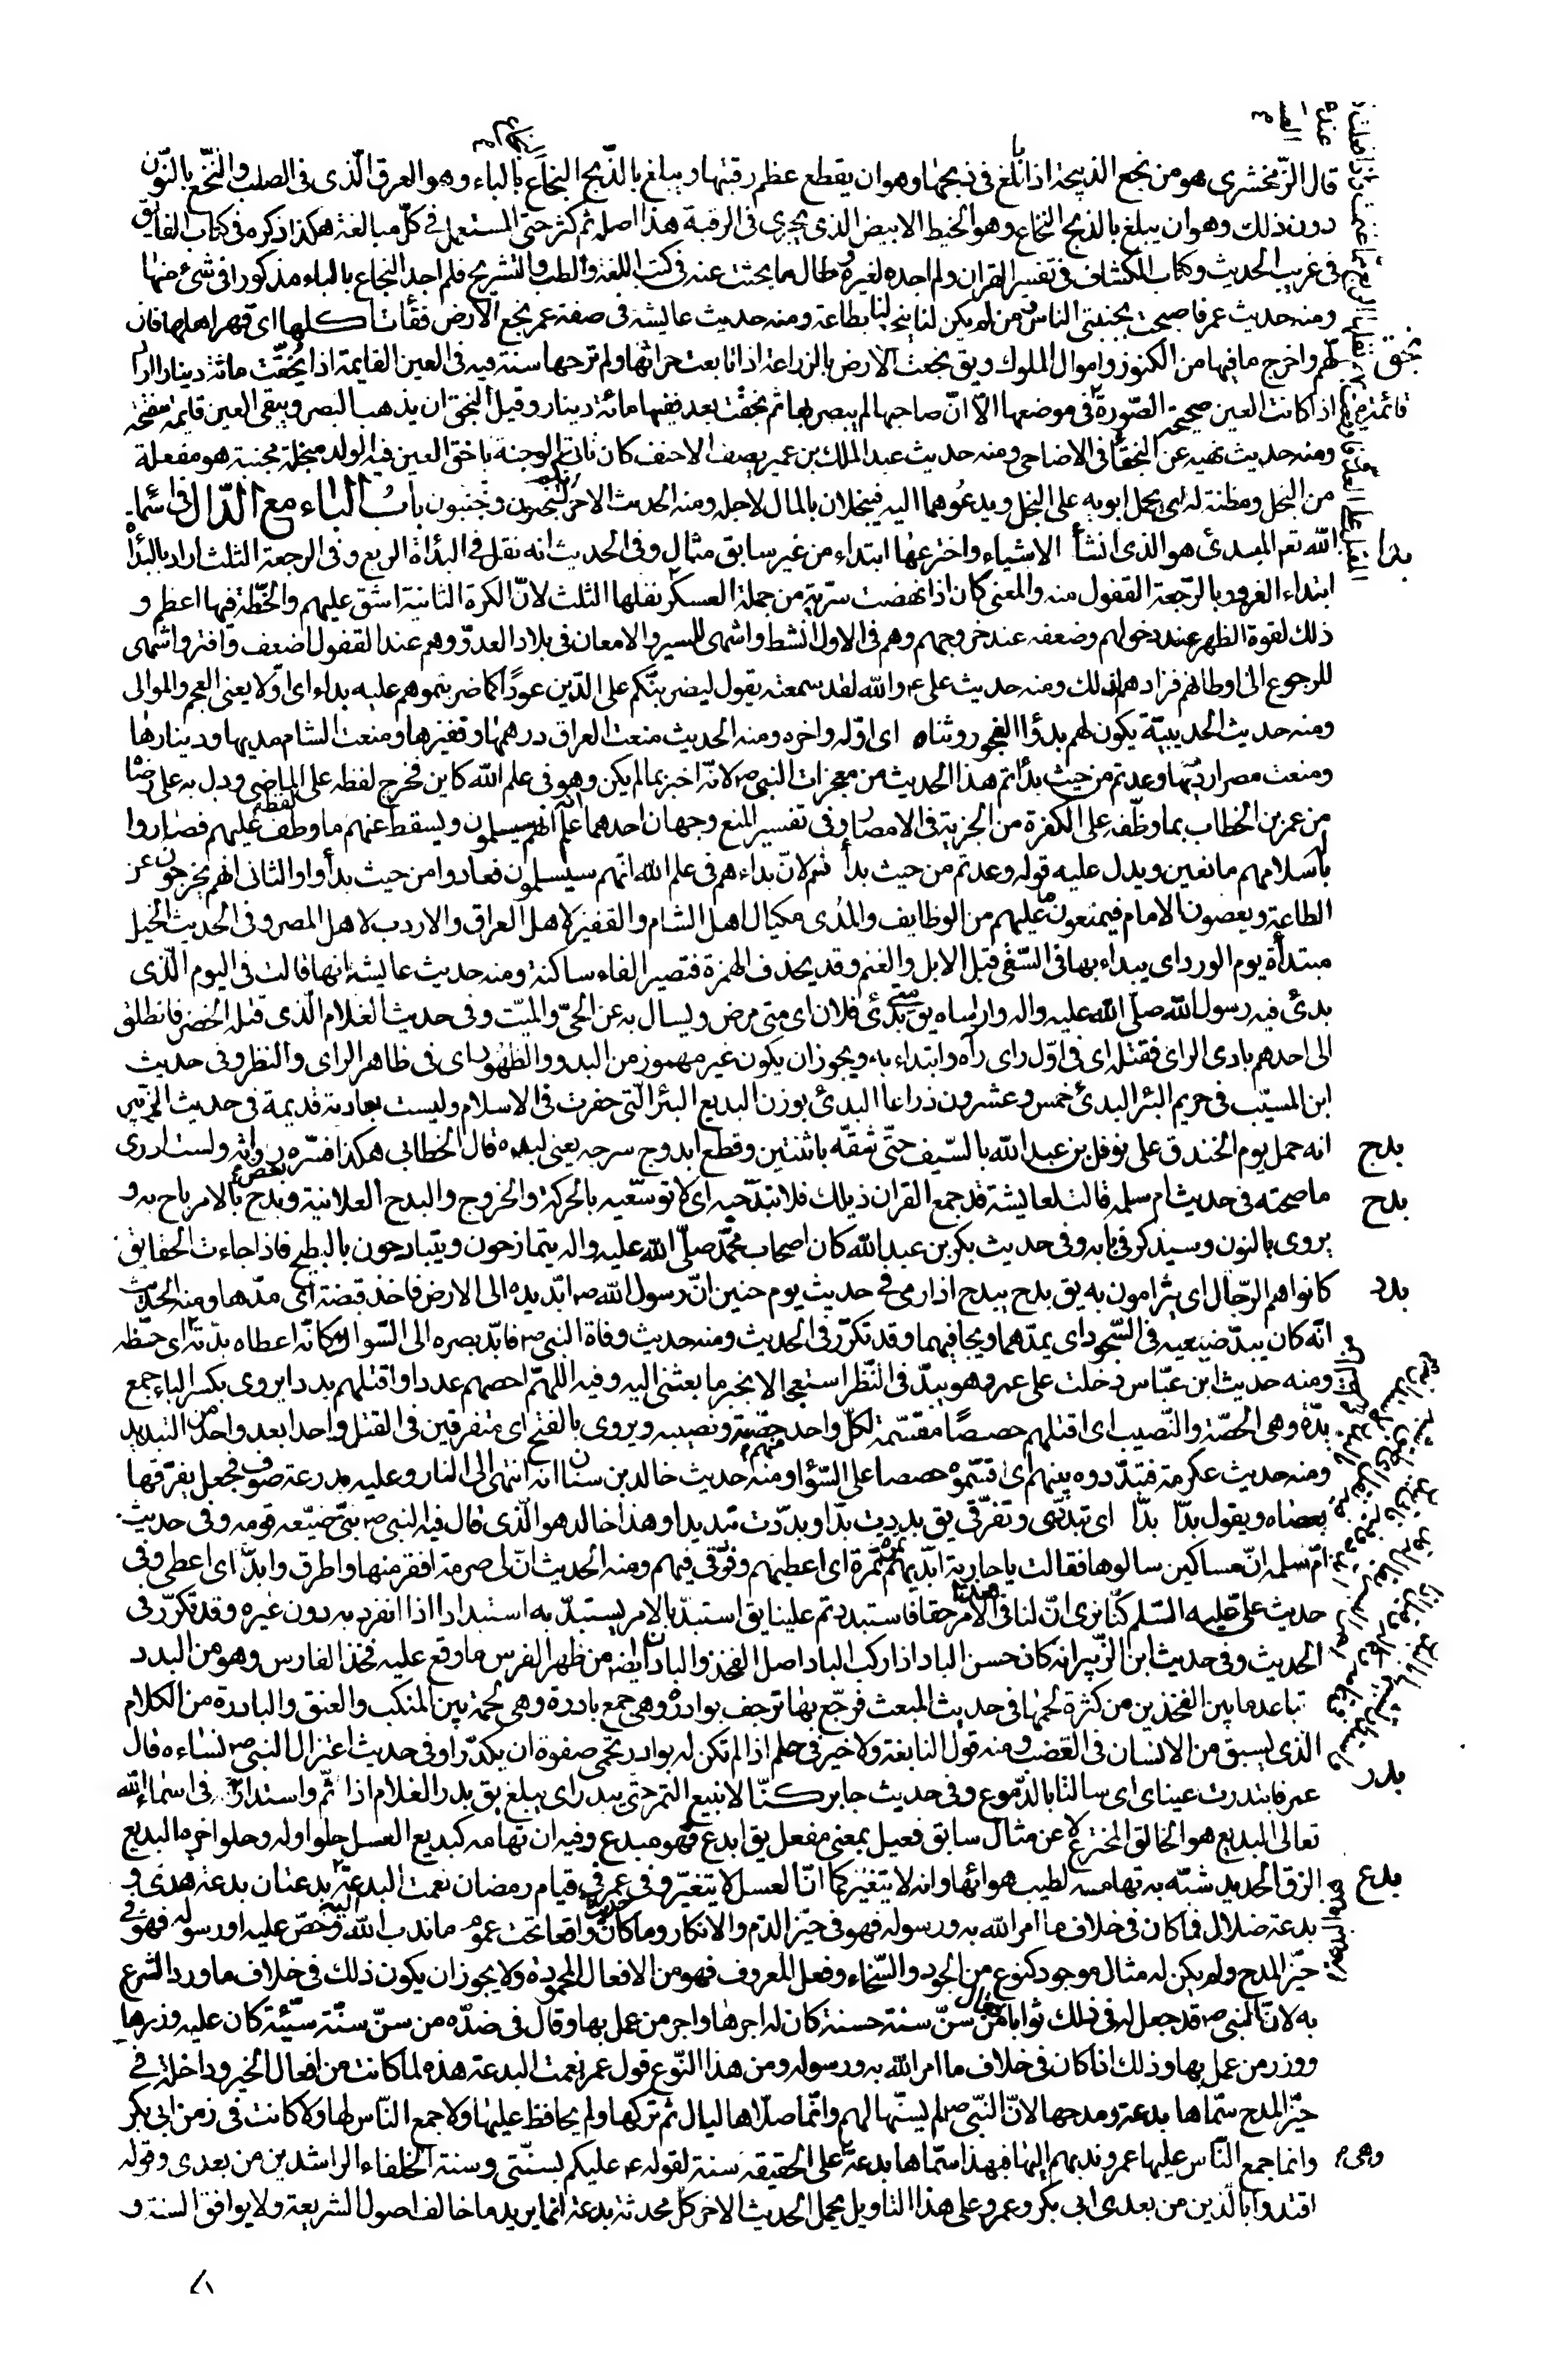 قال الزّمخشرى هو من بخع الذبيحة اذا بالغ فى ذبحها وهو ان يقطع عظم رقبتها ويبلغ بالذّبح البخاع بالباء وهو العرق الّذى فى الصلب والنّخع بالنّون
دون ذلك وهو ان يبلغ بالذبح النخاع وهو الخيط الابيض الذى يجرى فى الرقبة هذا اصله ثم كثر حتى استعمل فى كلّ مبالغة هكذا ذكره فى كتاب الفايق
فى غريب الحديث وكتاب الكشاف فى تفسير القران ولم اجده لغيره وطال ما بحثت عنه فى كتب اللغة والطب والتشريح فلم اجد البخاع بالباء مذكورا فى شئ منها
ومنه حديث عمر فاصبحت يجنبنى الناس ومن لم يكن لنا يبخع لنا بطاعة ومنه حديث عايشة فى صفة عمر بخع الارض فقأت اكلها اى قهر اهلها فان
لهم واخرج ما فيها من الكنوز واموال الملوك ويق بخعت الارض بالزراعة اذا تابعت حراثتها ولم ترحها سنة فيه فى العين القايمة اذا بخقت مائة دينار اراد
اذا كانت العين صحيحة الصّورة فى موضعها الّا انّ صاحبها لم يبصر بها ثم بخقت بعد ففيها مائة دينار وقيل البخق ان يذهب البصر ويبقى العين قايمة منفتحة
بخق
ومنه حديث نهيه عن البخقاء فى الاضاحى ومنه حديث عبد الملك بن عمير يصف الاحنف كان ناتئ الوجنة باخق العين فيه الولد مبخلة مجبنة هو مفعلة
من البخل ومظنة له اى يحمل ابويه على البخل ويدعوهما اليه فيبخلان بالمال لاجله ومنه الحديث الاخر انكم لتبخلون وتجبنون باب الباء مع الدّال فى اسماء
بدا
الله تعم المبدئ هو الذى انشأ الاشياء واخترعها ابتداء من غير سابق مثال وفى الحديث انه نفل فى البدأة الربع وفى الرجعة الثلث اراد بالبدأة
ابتداء الغزو وبالرّجعة القفول منه والمعنى كان اذا نهضت سرّية من جملة العسكر نفلها الثلث لانّ الكرة الثانية اشق عليهم والخطّة فيها اعظم و
ذلك لقوة الظهر عند دخولهم وضعفه عند خروجهم وهم فى الاول انشط واشهى للسير والامعان فى بلاد العدوّ وهم عند القفول اضعف وافتر واشهى
للرجوع الى اوطانهم فزادهم لذلك ومنه حديث على ع والله لقد سمعته يقول ليضربنّكم على الدّين عودًا كما ضربتموهم عليه بداء اى اوّلا يعنى العجم والموالى
ومنه حديث الحديبيّة يكون لهم بدؤ الفجور وثناه اى اوّله واخره ومنه الحديث منعت العراق درهمها وقفيزها ومنعت الشام مديها ودينارها
ومنعت مصر اردبّها وعدتم من حيث بدأتم هذا الحديث من معجزات النبى ص لانّه اخبر بما لم يكن وهو فى علم الله كاين فخرج لفظه على لفظه الماضى ودل به على رضا
من عمر بن الخطاب بما وظّفه على الكفرة من الجزية فى الامصار وفى تفسير المنع وجهان احدهما انه علم انهم سيسلمون ويسقط عنهم ما وظف عليهم فصاروا
باسلامهم مانعين ويدل عليه قوله وعدتم من حيث بدأتم لانّ بداءهم فى علم الله انّهم سيسلمون فعادوا من حيث بدأوا والثانى انهم يخرجون عن
الطاعة ويعصون الامام فيمنعون ما عليهم من الوظايف والمُدى مكيال اهل الشام والقفيز لاهل العراق والاردب لاهل المصر وفى الحديث الخيل
مبتدأة يوم الورد اى يبداء بها فى السّقى قبل الابل والغنم وقد يحذف الهمزة فتصير الفاء ساكنة ومنه حديث عايشة انها قالت فى اليوم الّذى
بدئ فيه رسول الله صلّى الله عليه واله وارأساه يق متى بدئ فلان اى متى مرض ويسال به عن الحىّ والميّت وفى حديث الغلام الّذى قتله الخضر فانطلق
الى احدهم بادى الراى فقتله اى فى اوّل راى رآه وابتداء به ويجوز ان يكون غير مهموز من البدو والظهور اى فى ظاهر الراى والنظر وفى حديث
ابن المسيّب فى حريم البئر البدئ خمس وعشرون ذراعا البدئ بوزن البديع البئر الّتى حفرت فى الاسلام وليست بعادية قديمة فى حديث الزبير
بدج
انه حمل يوم الخندق على نوفل بن عبد الله بالسّيف حتّى شقّه باثنتين وقطع ابدوج سرجه يعنى لبده قال الخطابى هكذا فسّره بعض رواته ولست ادرى
بدح
ما صحته فى حديث ام سلمه قالت لعايشة قد جمع القران ذيلك فلا تبدّحيه اى لا توسّعيه بالحركة والخروج والبدح العلانية وبدح بالامر باح به و
يروى بالنون وسيذكر فى بابه وفى حديث بكر بن عبد الله كان اصحاب محمّد صلّى الله عليه واله يتمازحون ويتبادحون بالبطيخ فاذا جاءت الحقايق
بدد
كانوا هم الرّجال اى يترامون به يق بدح يبدح اذا رمى فى حديث يوم حنين انّ رسول الله ص ابّد يده الى الارض فاخذ قبضة اى مدّها ومنه الحديث
انّه كان يبدّ ضبعيه فى السّجود اى يمدّهما ويجافيهما وقد تكرّر فى الحديث ومنه حديث وفاة النبى ص فابّد بصره الى السّواك كانّه اعطاه بدّته اى حظّه
ومنه حديث ابن عبّاس دخلت على عمر وهو يبدّ فى النّظر استعجالا بخبر ما بعثنى اليه وفيه اللهمّ احصهم عددا واقتلهم بددا يروى بكسر الباء جمع
بدّة وهى الحصّة والنّصيب اى اقتلهم حصصًا مقسّمة لكلّ واحد منهم حصّته ونصيبه ويروى بالفتح اى متفرقين فى القتل واحدا بعد واحد من التبديد
ومنه حديث عكرمة فتبدّدوه بينهم اى قسّموه حصصا على السّواء ومنه حديث خالد بن سنان انه انتهى الى النار وعليه مدرعة صوف فجعل يفرّقها
بعصاه ويقول بدّا بدّا اى تبدّدى وتفرّقى يق بددت بدّا وبدّدت تبديدا وهذا خالد هو الّذى قال فيه النبى ص نبىّ ضيّعه قومه وفى حديث
امّ سلمه انّ مساكين سالوها فقالت يا جارية ابدّيهم تمرة تمرة اى اعطيهم وفرّقى فيهم ومنه الحديث انّ لى صرمة افقر منها واطرق وابدّ اى اعطى وفى
حديث على عليه السّلم كنّا نرى انّ لنا فى هذا الامر حقا فاستبددتم علينا يق استبدّ بالامر يستبدّ به استبدادا اذا انفرد به دون غيره وقد تكرّر فى
الحديث وفى حديث ابن الزّبير انه كان حسن الباد اذا ركب الباد اصل الفخذ والبادان ايضا من ظهر الفرس ما وقع عليه فخذ الفارس وهو من البدد
تباعد ما بين الفخذين من كثرة لحمها فى حديث المبعث فرجّع بها ترجف بوادره وهى جمع بادرة وهى لحمة بين المنكب والعنق والبادرة من الكلام
بدر
الذى يسبق من الانسان فى الغضب ومنه قول النابغة ولا خير فى حلم اذا لم تكن له بوادر تحمى صفوه ان يكدّرا وفى حديث اعتزال النبى ص نساءه قال
عمر فابتدرت عيناى اى سالتا بالدّموع وفى حديث جابر كنّا لا نبيع التمر حتى يبدر اى يبلغ يق بدر الغلام اذا تمّ واستدار فى اسماء الله
تعالى البديع هو الخالق المخترع لا عن مثال سابق فعيل بمعنى مفعل يق ابدع فهو مبدع وفيه ان تهامه كبديع العسل حلو اوله وحلو اخره البديع
بدع
الزق الجديد شبّه به تهامه لطيب هوائها وانه لا يتغيّر كما انّ العسل لا يتغيّر وفى حديث عمر فى قيام رمضان نعمت البدعة هذه البدعة بدعتان بدعة هدى و
بدعة ضلال فما كان فى خلاف ما امر الله به ورسوله فهو فى حيّز الذّم والانكار وما كان واقعا تحت عموم ما ندب الله اليه وحضّ عليه او رسوله فهو فى
حيّز المدح وما لم يكن له مثال موجود كنوع من الجود والسّخاء وفعل المعروف فهو من الافعال المحمودة ولا يجوز ان يكون ذلك فى خلاف ما ورد الشرع
به لانّ النبى ص قد جعل له فى ذلك ثوابا فقال من سنّ سنة حسنة كان له اجرها واجر من عمل بها وقال فى ضدّه من سنّ سنّة سيّئة كان عليه وزرها
ووزر من عمل بها وذلك اذا كان فى خلاف ما امر الله به ورسوله ومن هذا النّوع قول عمر نعمت البدعة هذه لما كانت من افعال الخير وداخلة فى
حيّز المدح سمّاها بدعة ومدحها لانّ النّبى ص لم يسنّها لهم وانّما صلّاها ليال ثم تركها ولم يحافظ عليها ولا جمع النّاس لها ولا كانت فى زمن ابى بكر
وانما جمع النّاس عليها عمر وندبهم اليها فبهذا سمّاها بدعة وهى على الحقيقه سنة لقوله ع عليكم بسنّتى وسنة الخلفاء الراشدين من بعدى وقوله
اقتدوا بالّذين من بعدى ابى بكر وعمر وعلى هذا التاويل يحمل الحديث الاخر كلّ محدثة بدعة انّما يريد ما خالف اصول الشريعة ولا يوافق السنة و